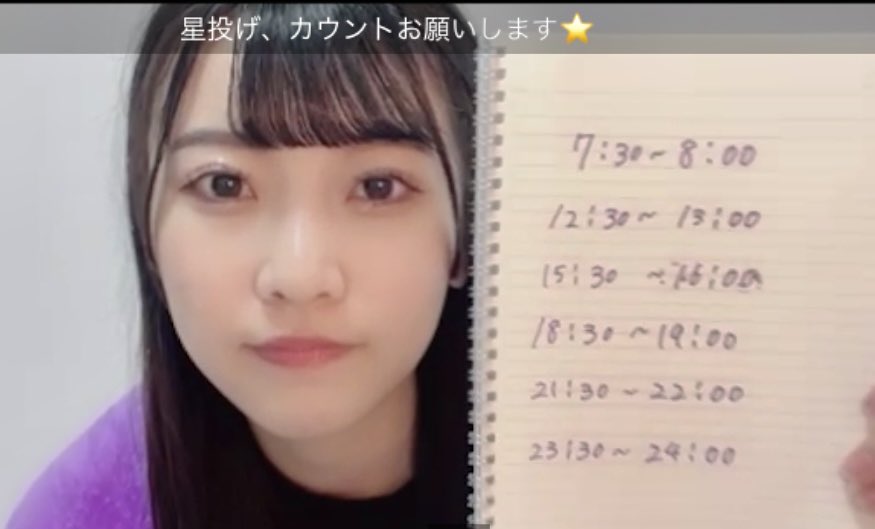 星投げ、カウントお願いします⭐
7:30~8:00
12:30~13:00
15:30 ~16:00
18:30~19:00
21:30~22:00
23:30~24:00